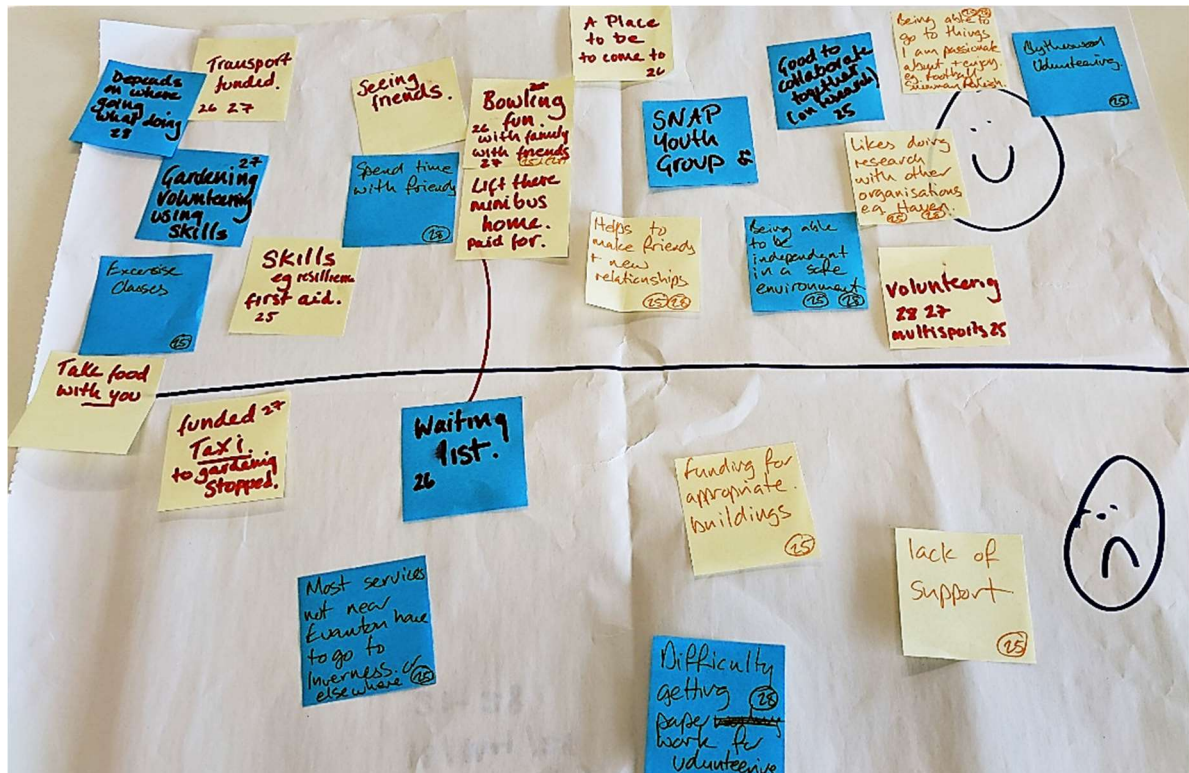 Depends
on where
going
what doing
28
Transport
funded.
26 27
Seeing
friends.
Bowling 25
fun.
26 with family
with friends
27 25 28
A Place
to be
to come to
26
SNAP
Youth
Group
Good to
collaborate
together
(on research)
25
25 28
Being able to
go to things
I am passionate
about + enjoy.
eg. football
Volunteering.
25
27
Gardening
volunteering
using
skills
Spend time
with friends
28
Lift there
minibus
home.
paid for.
Likes doing
research
with other
organisations
eg. Haven.
25 28
Excersise
Classes
25
Skills
eg resilience
first aid.
25
Helps to
make friends
+ new
relationships
25 28
Being able
to be
independent
in a safe
environment
25 28
Volunteering
28 27
multisports 25
Take food
with you
funded 27
Taxi
to gardening
stopped.
Waiting
list.
26
funding for
appropriate
buildings
25
lack of
support
25
Most services
not near
Evanton have
to go to
Inverness. or
elsewhere 25
Difficulty
getting 28
paper
work for
volunteering